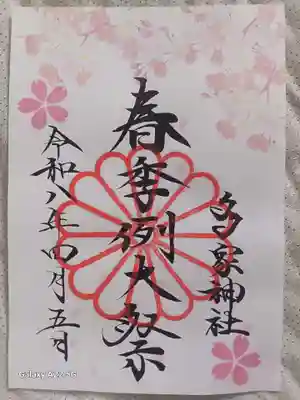 多家神社
春季例大祭
令和八年四月五日
Galaxy